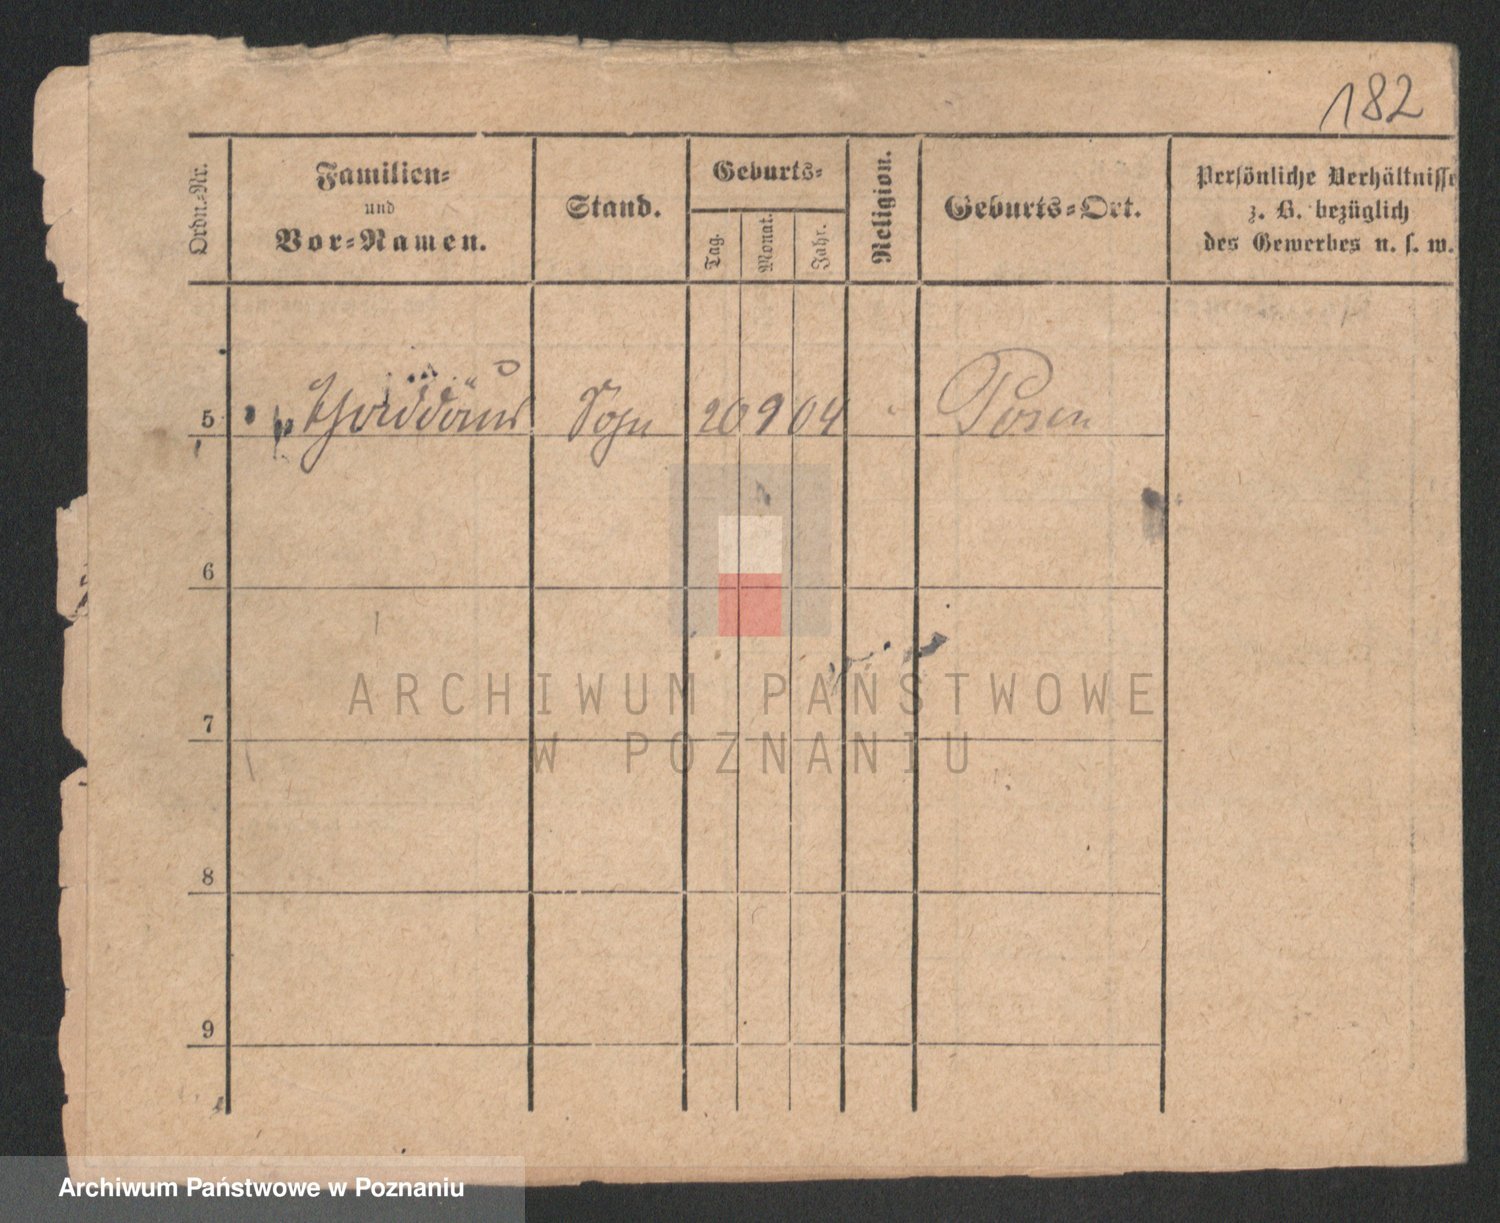 182
Ordn.-Nr.
Familien-
und
Vor-Namen.
Stand.
Geburts-
Tag.
Monat.
Jahr.
Religion.
Geburts-Ort.
Persönliche Verhältnisse
z. B. bezüglich
des Gewerbes u. s. w.
5 Thaddäus Sohn 20 9 04 Posen
6
7
8
9
ARCHIWUM PAŃSTWOWE
W POZNANIU
Archiwum Państwowe w Poznaniu